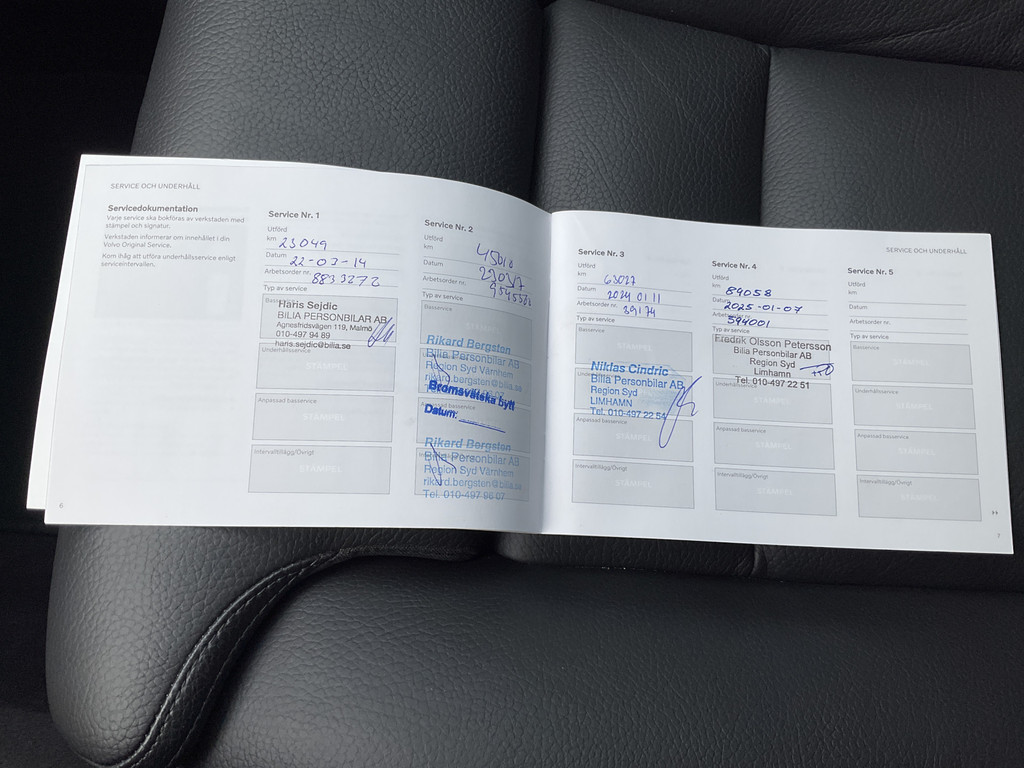 SERVICE OCH UNDERHÅLL
Servicedokumentation
Varje service ska bokföras av verkstaden med
stämpel och signatur.
Verkstaden informerar om innehållet i din
Volvo Original Service.
Kom ihåg att utföra underhållsservice enligt
serviceintervallen.
6
Service Nr. 1
Utförd
km 23049
Datum 22-03-14
Arbetsorder nr. 8833272
Typ av service
Haris Sejdic
BILIA PERSONBILAR AB
Agnesfridsvägen 119, Malmö
010-497 94 89
haris.sejdic@bilia.se
Underhållsservice
STÄMPEL
Anpassad basservice
STÄMPEL
Intervalltillägg/Övrigt
STÄMPEL
Service Nr. 2
Utförd
km
Datum
Arbetsorder nr.
Typ av service
Basservice
Rikard Bergsten
Bilia Personbilar AB
Region Syd Värnhem
rikard.bergsten@bilia.se
Bromsvätska bytt
Datum:
Rikard Bergsten
Bilia Personbilar AB
Region Syd Värnhem
rikard.bergsten@bilia.se
Tel. 010-497 96 07
SERVICE OCH UNDERHÅLL
Service Nr. 3
Utförd
km 63027
Datum 2024 01 11
Arbetsorder nr. 39174
Typ av service
Basservice
STÄMPEL
Niklas Cindric
Bilia Personbilar AB
Region Syd
LIMHAMN
Tel. 010-497 22 54
Anpassad basservice
STÄMPEL
Intervalltillägg/Övrigt
STÄMPEL
Service Nr. 4
Utförd
km 84058
Datum 2025-01-07
Arbetsorder nr. 594001
Typ av service
Fredrik Olsson Petersson
Bilia Personbilar AB
Region Syd
Limhamn
Tel. 010-497 22 51
STÄMPEL
Anpassad basservice
STÄMPEL
Intervalltillägg/Övrigt
STÄMPEL
Service Nr. 5
Utförd
km
Datum
Arbetsorder nr.
Typ av service
Basservice
STÄMPEL
Underhållsservice
STÄMPEL
Anpassad basservice
STÄMPEL
Intervalltillägg/Övrigt
STÄMPEL
7